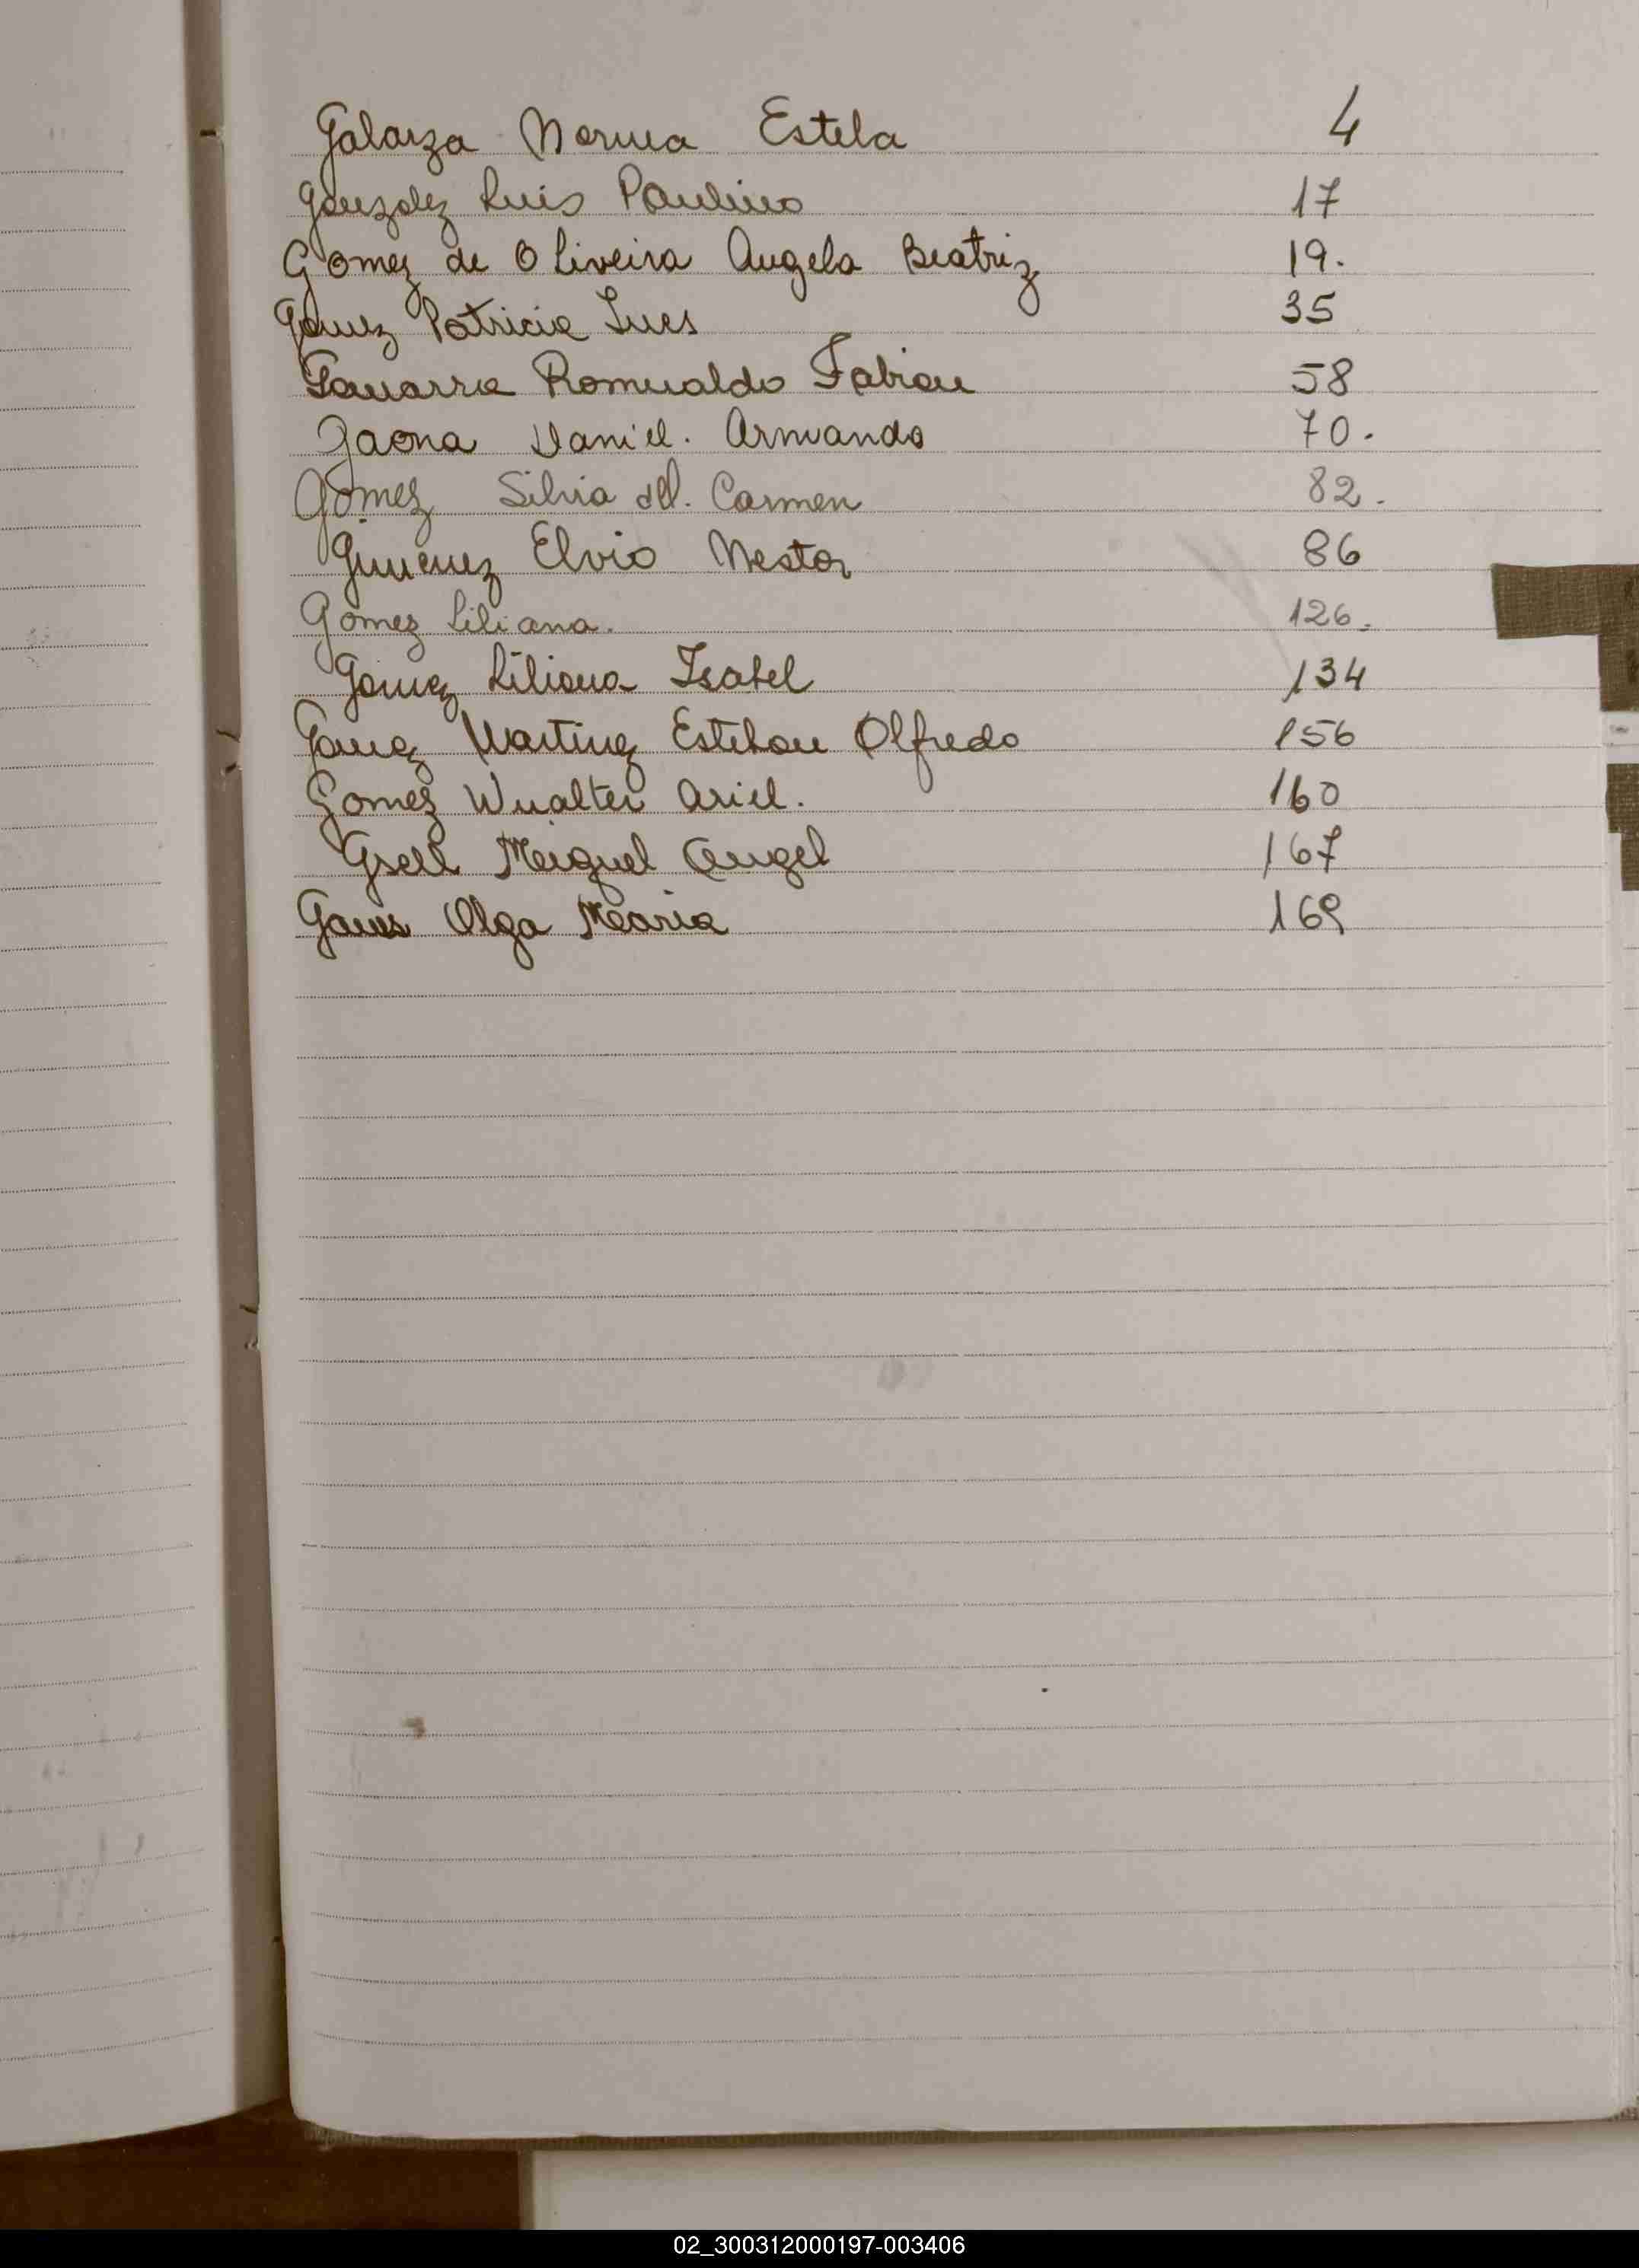 Galarza Norma Estela 4
Gonzalez Luis Paulino 17
Gomez de Oliveira Angela Beatriz 19.
Gomez Patricia Ines 35
Gamarra Romualdo Fabian 58
Gaona Daniel. Armando 70.
Gomez Silvia del. Carmen 82.
Gimenez Elvio Nestor 86
Gomez Liliana. 126.
Gomez Liliana Isabel 134
Gomez Martinez Esteban Alfredo 156
Gomez Wualter Ariel. 160
Gsell Meiguel Angel 167
Olga Maria 169
02_300312000197-003406